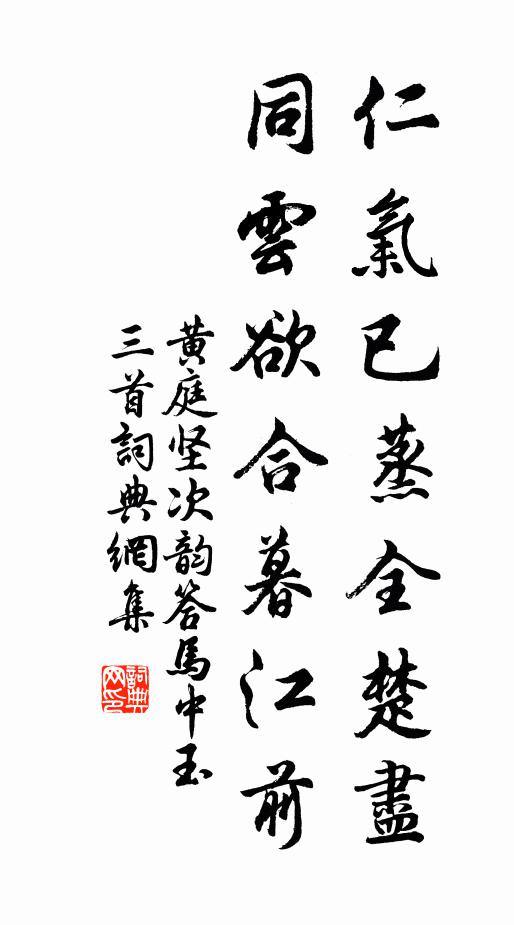 仁氣已蒸全楚盡
同雲欲合暮江前
黄庭坚次韵答馬中玉
三首詞典網集
詞典
网印